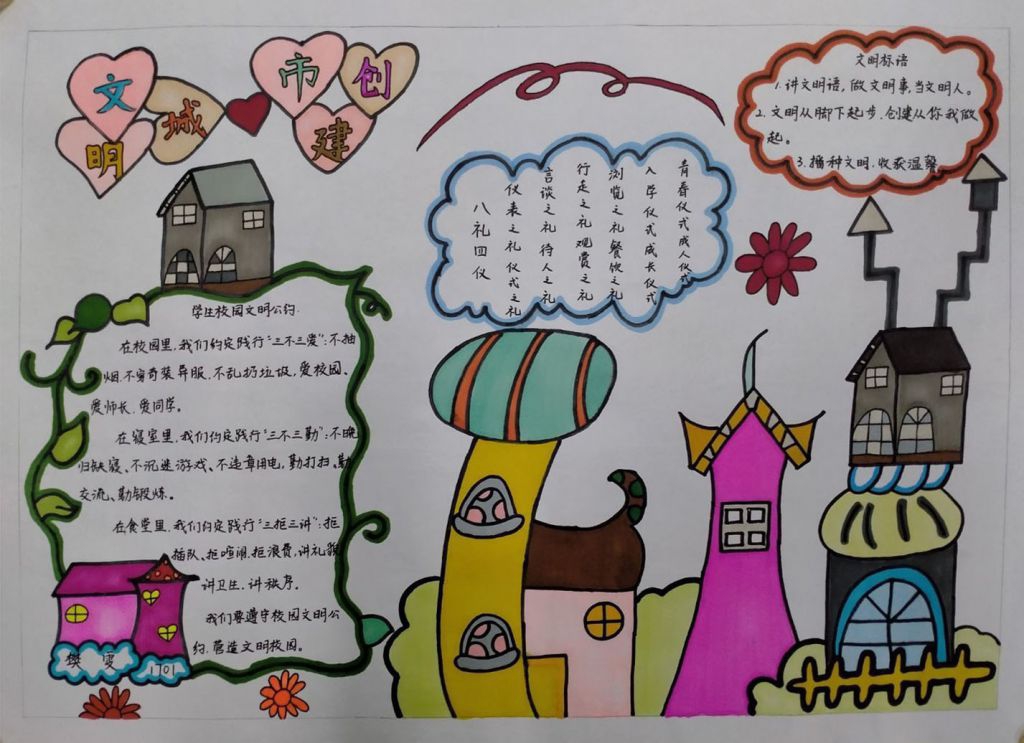 文明城市创建
文明标语
1.讲文明语,做文明事,当文明人。
2.文明从脚下起步,创建从你我做
起。
3.播种文明,收获温馨
八礼四仪
仪表之礼 仪式之礼
言谈之礼 待人之礼
行走之礼 观赏之礼
浏览之礼 餐饮之礼
入学仪式 成长仪式
青春仪式 成人仪式
学生校园文明公约.
在校园里,我们约定践行“三不三爱”:不抽
烟.不穿奇装异服、不乱扔垃圾,爱校园、
爱师长、爱同学。
在寝室里,我们约定践行“三不三勤”:不晚
归缺寝、不沉迷游戏、不违章用电,勤打扫、勤
交流、勤锻炼。
在食堂里,我们约定践行“三拒三讲”:拒
插队、拒喧闹,拒浪费,讲礼貌
讲卫生,讲秩序。
我们要遵守校园文明公
约,营造文明校园。
1701